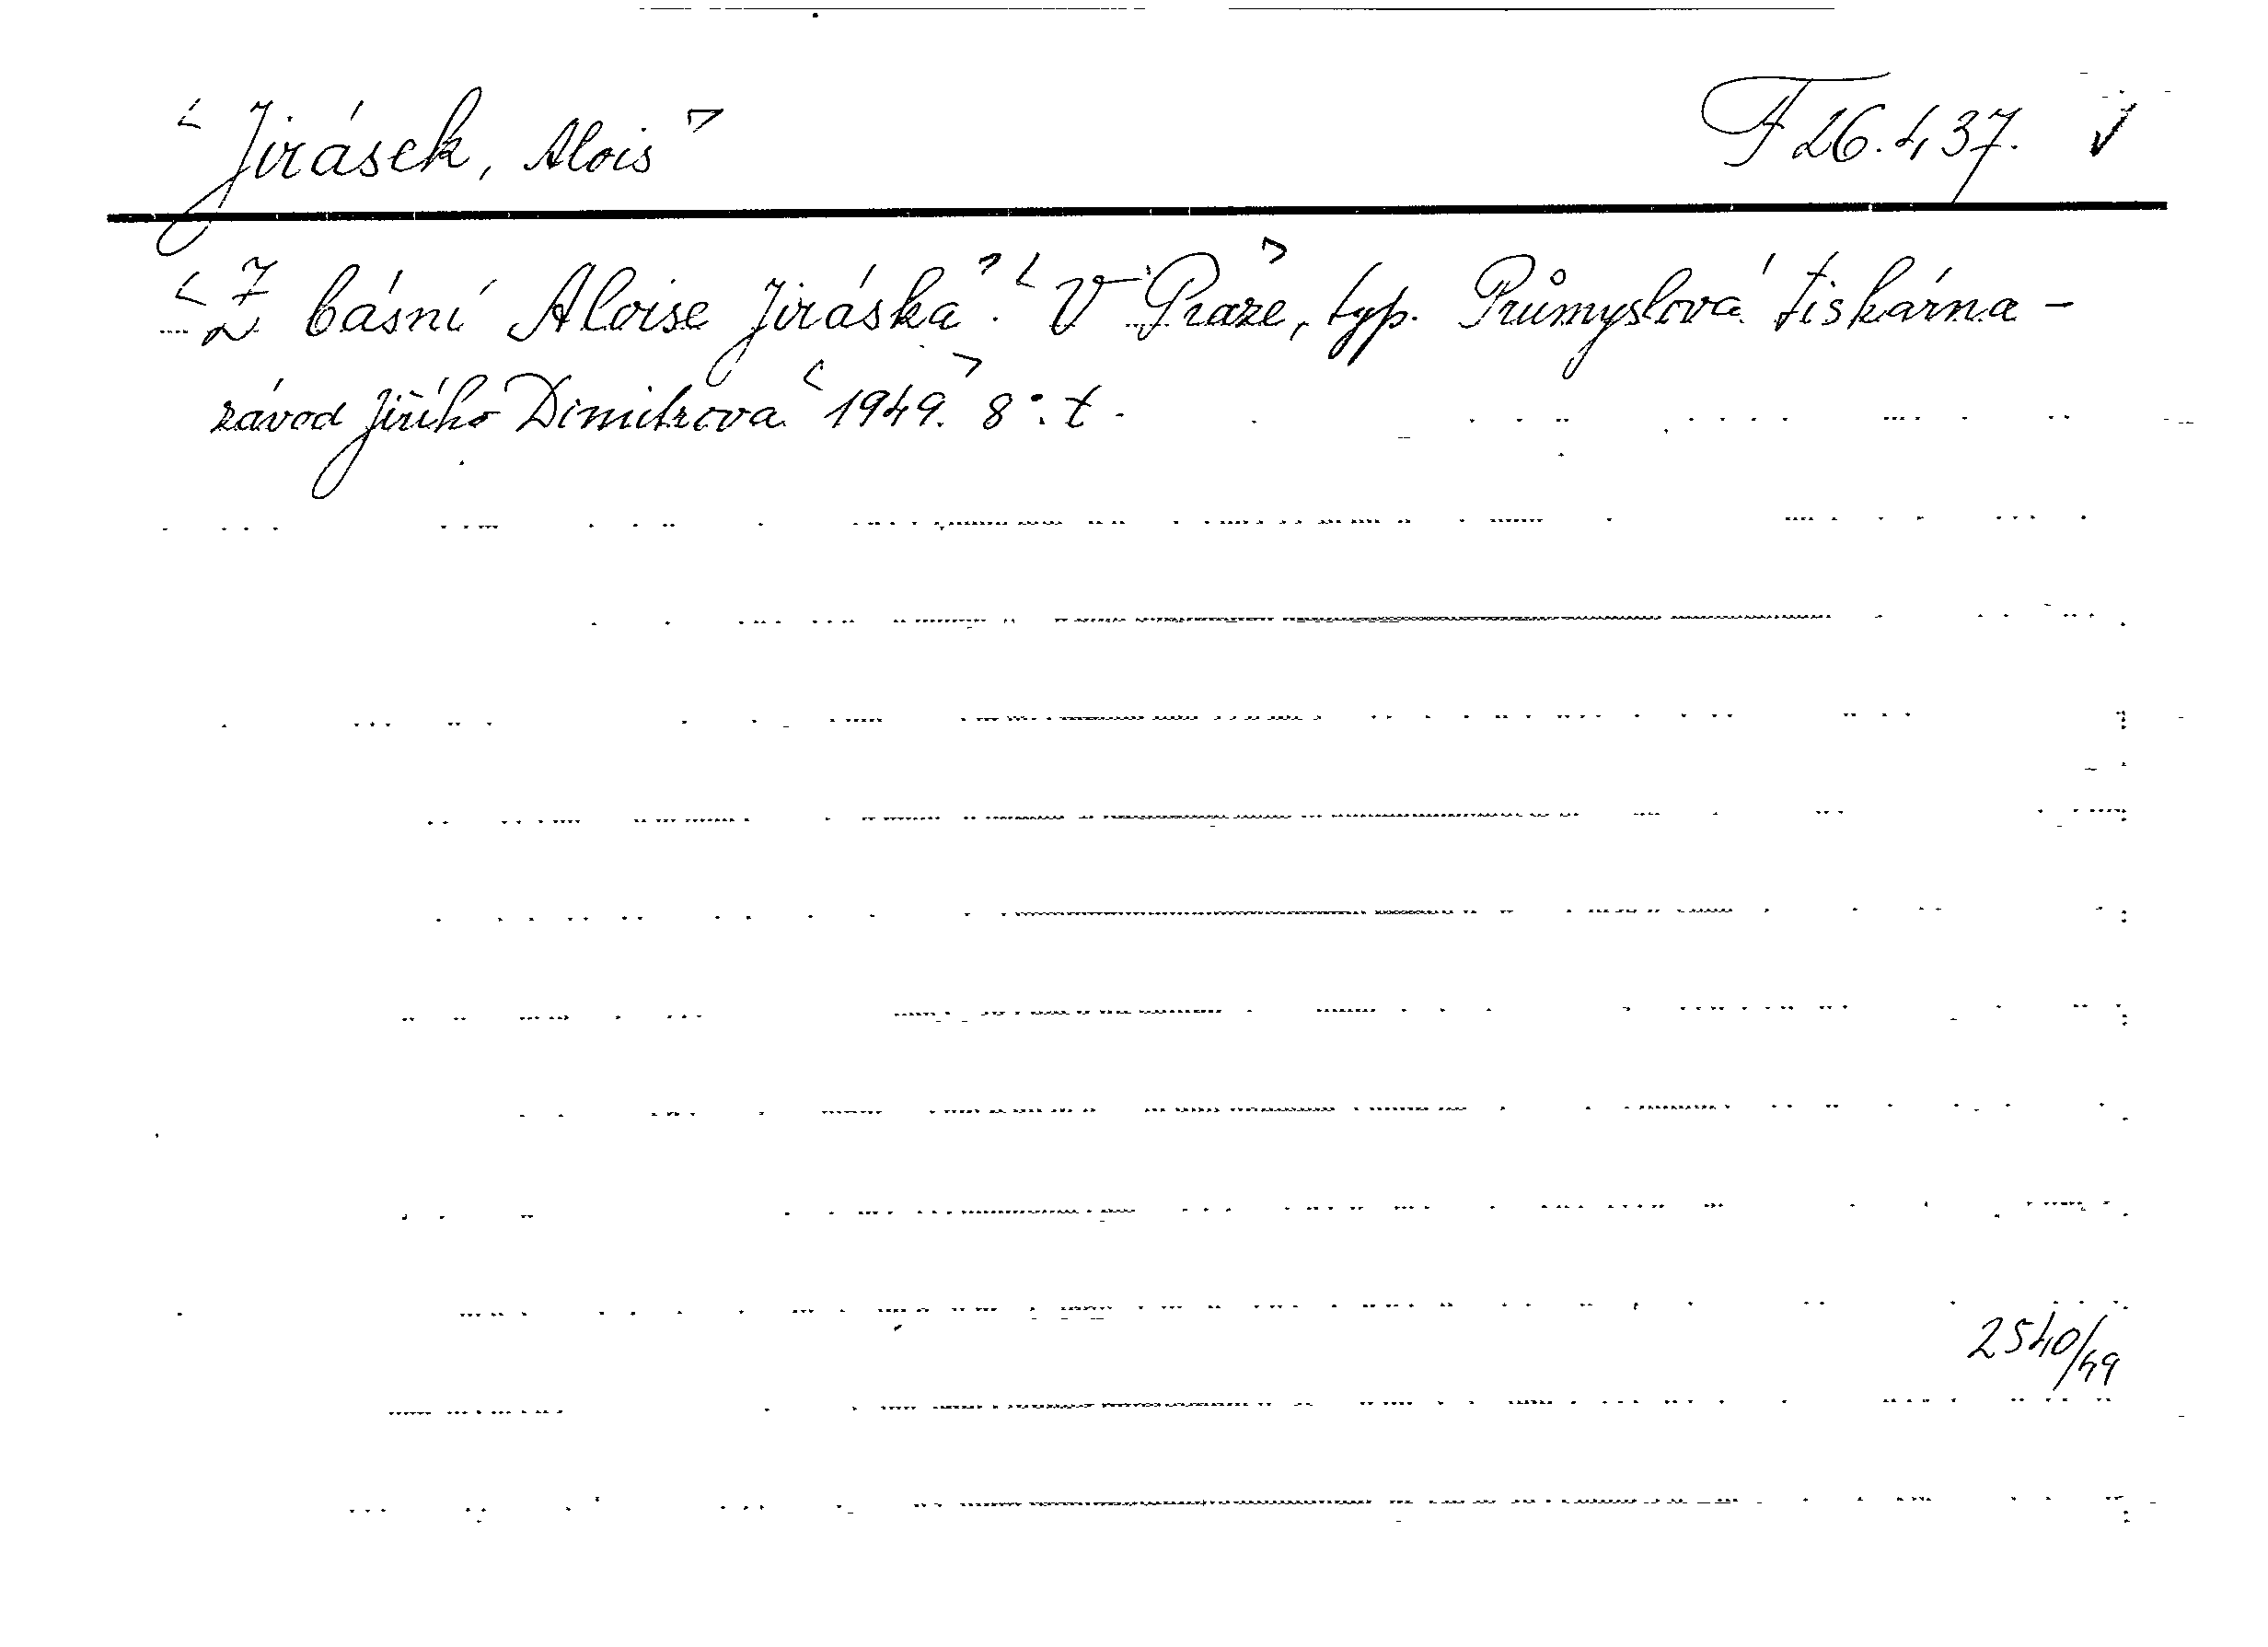 <Jirásek, Alois> F 26.437. ✓
<Z básní Aloise Jiráska>. <V Praze>, typ. Průmyslová tiskárna -
závod Jiřího Dimitrova <1949.> 8°. t.
2540/49